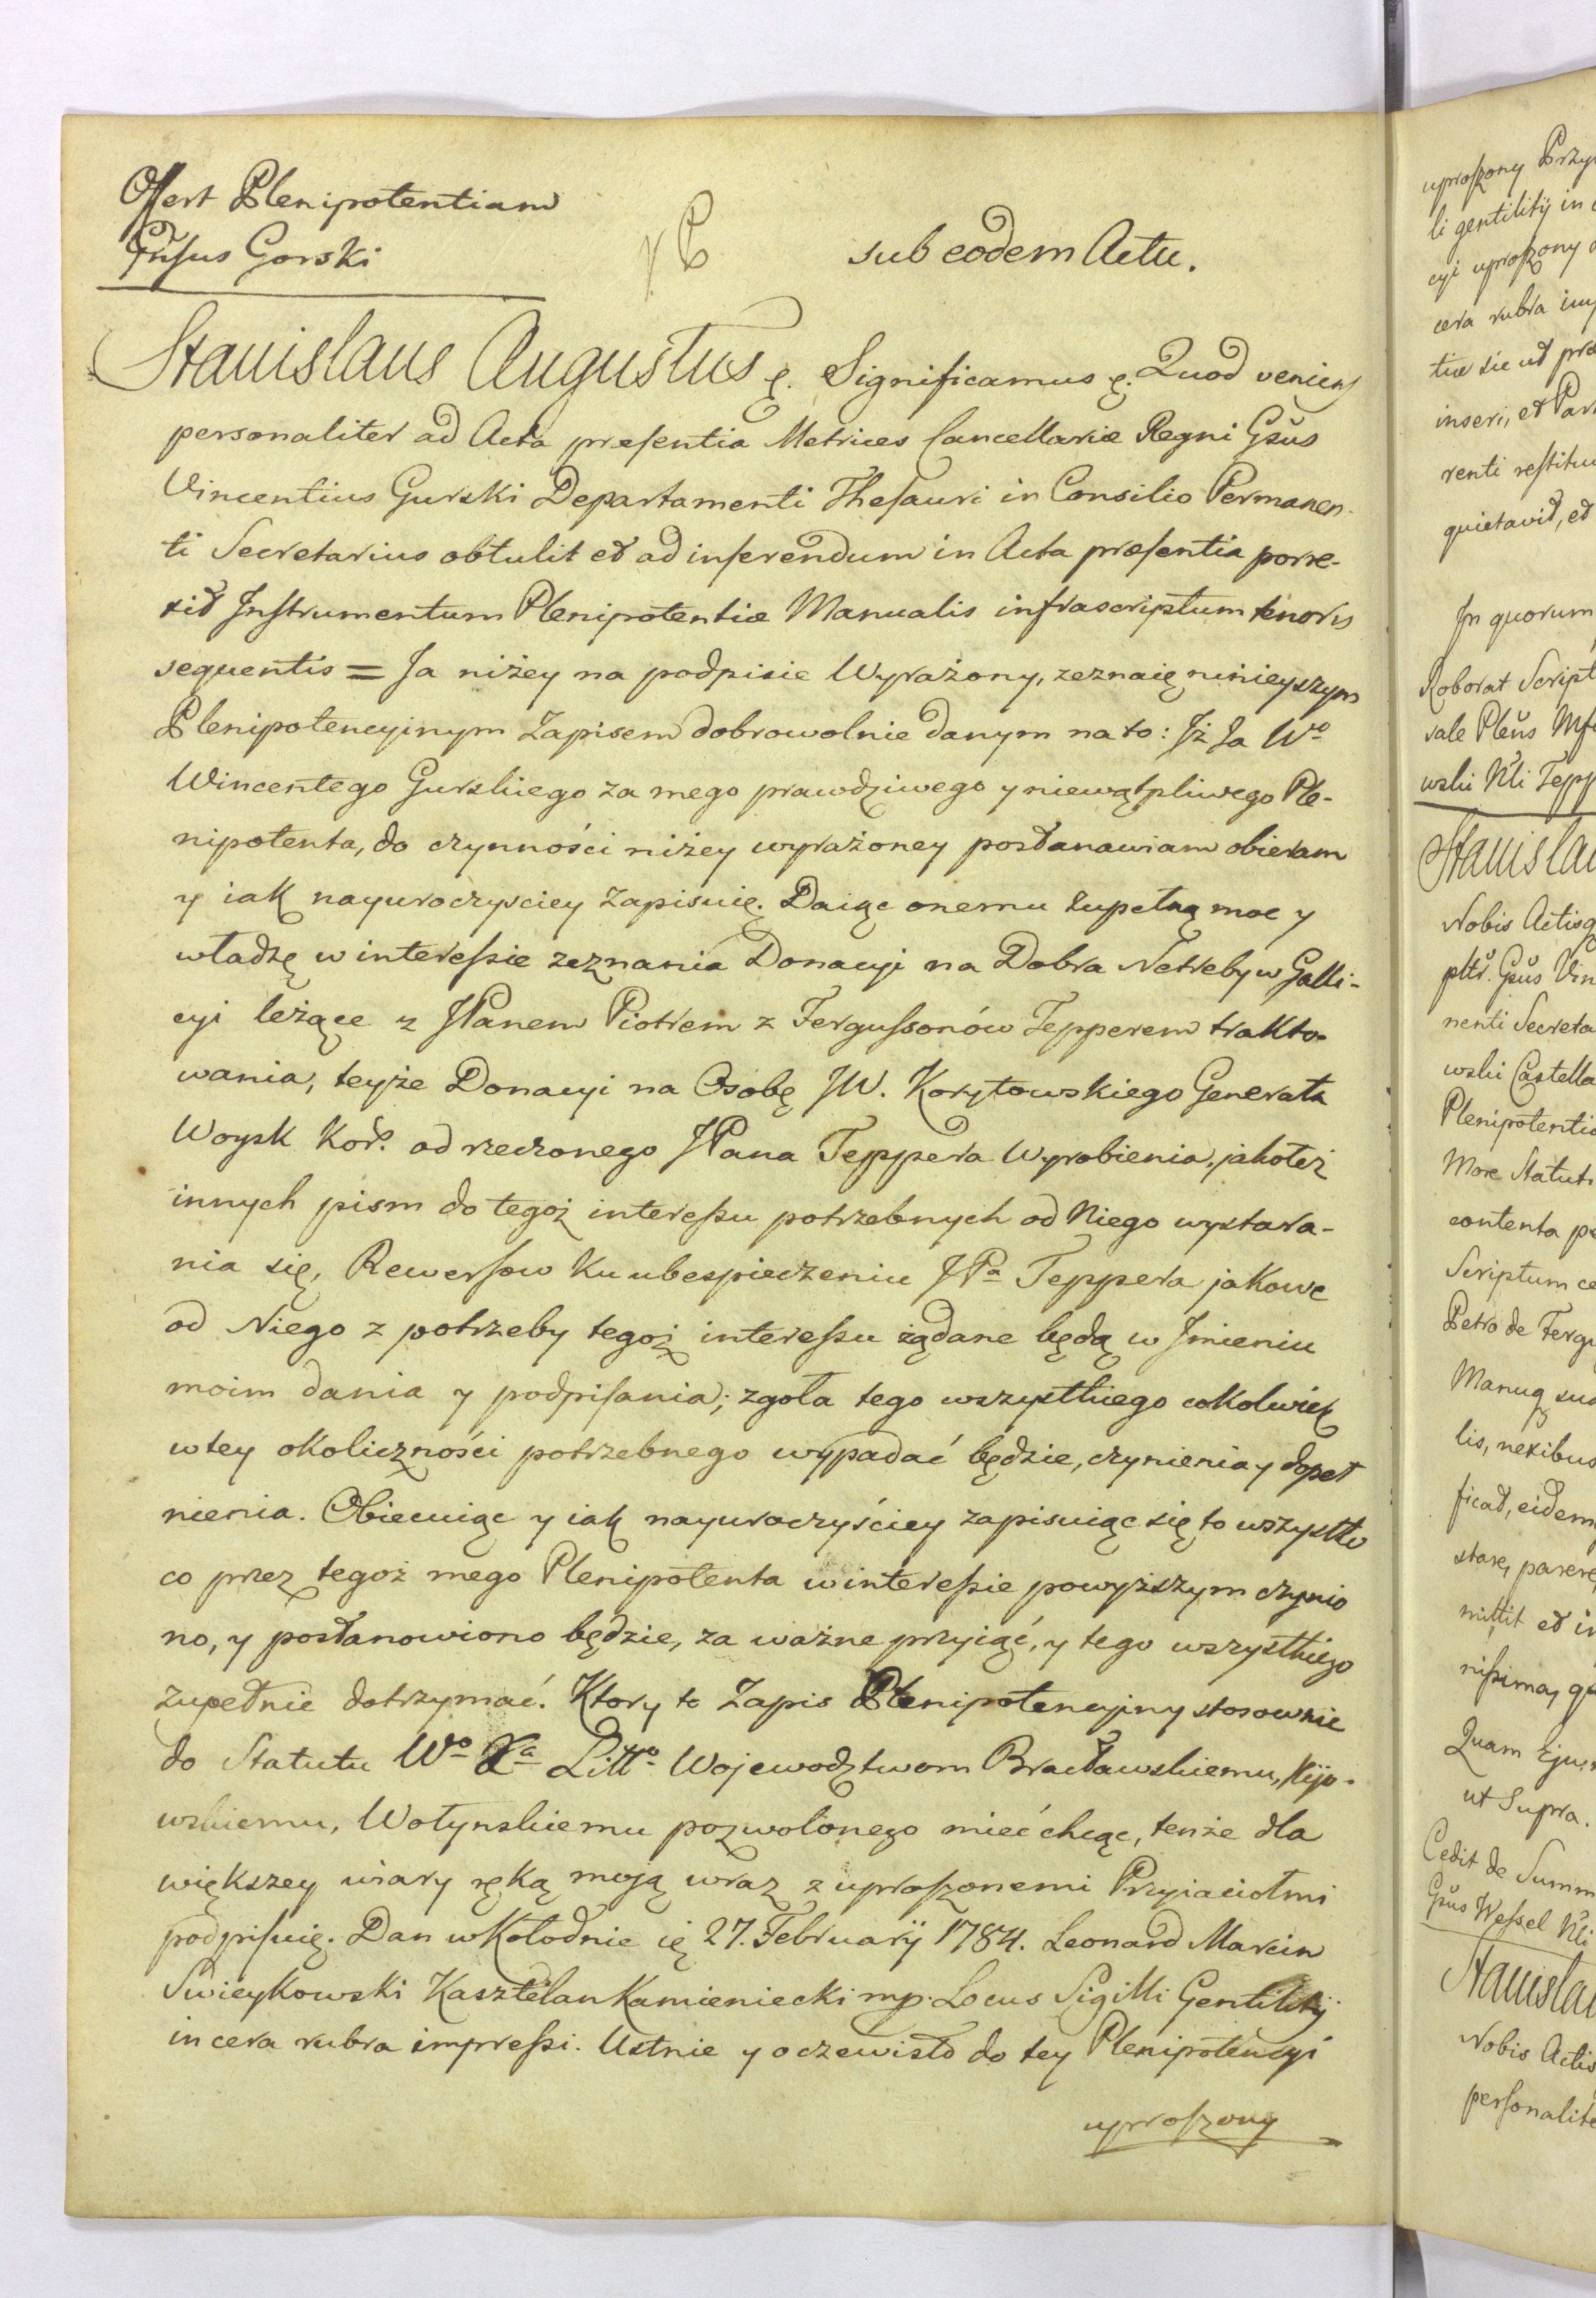 Offert Plenipotentiam
Gnsus Gorski
sub eodem Actu.
Stanislaus Augustus &. Significamus &. Quod veniens
personaliter ad Acta præsentia Metrices Cancellariæ Regni Gsus
Vincentius Gurski Departamenti Thesauri in Consilio Permanen-
ti Secretarius obtulit et ad inserendum in Acta præsentia porre-
xit Instrumentum Plenipotentiæ Manualis infrascriptum tenoris
sequentis = Ja niżey na podpisie Wyrażony, zeznaię ninieyszym
Plenipotencyinym Zapisem dobrowolnie danym na to: Iż Ja Wo
Wincentego Gurskiego za mego prawdziwego y niewątpliwego Ple-
nipotenta, do czynności niżey wyrażoney postanawiam obieram
y iak nayuroczysciey Zapisuię. Daiąc onemu zupełną moc y
władzę w interessie zeznania Donacyi na Dobra Netreby w Galli-
cyi leżące z JPanem Piotrem z Fergussonów Tepperem trakto-
wania, teyże Donacyi na Osobę JW. Korytowskiego Generała
Woysk Kor. od rzeczonego JPana Teppera Wyrobienia, jakoteż
innych pism do tegoż interessu potrzebnych od Niego wystara-
nia się, Rewersow ku ubespieczeniu JPa Teppera jakowe
od Niego z potrzeby tegoż interessu żądane będą w Jmieniu
moim dania y podpisania; zgoła tego wszystkiego cokolwiek
w tey okoliczności potrzebnego wypadać będzie, czynienia y dopeł
nienia. Obiecuiąc y iak nayuroczyściey zapisuiąc się to wszystko
co przez tegoż mego Plenipotenta w interessie powyższym czynio
no, y postanowiono będzie, za ważne przyiąć, y tego wszystkiego
zupełnie dotrzymać. Ktory to Zapis Plenipotencyjny stosownie
do Statutu Wo Xa Litto Wojewodztwom Bracławskiemu, Kijo-
wskiemu, Wołynskiemu pozwolonego mieć chcąc, tenże dla
większey wiary ręką moją wraz z uproszonemi Przyiaciołmi
podpisuię. Dan w Kołodnie ię 27. Februarij 1784. Leonard Marcin
Swieykowski Kasztelan Kamieniecki mp. Locus Sigilli Gentilitij
in cera rubra impressi. Ustnie y oczewisto do tey Plenipotencyi
uproszony
uproszony Przy
li gentilitij in
cyi uproszony
cera rubra im
tiæ sic ut præ
inseri, et Par
renti restitu
quietavit, et
In quorum
Roborat Script
wski Nli Tepp
Stanisla
Nobis Actisq
pltr. Gsus Vin
nenti Secreta
wski Castella
Plenipotentia
More Statuti
contenta p
Scriptum ce
Petro de Ferg
Manuq sua
lis, nexibus
ficat, eidem
stare, parere
mittit et in
nissima, q
Quam Eju
ut Supra.
Cedit de Summ
Gsus Wessel Nli
Stanisla
Nobis Actis
personalite